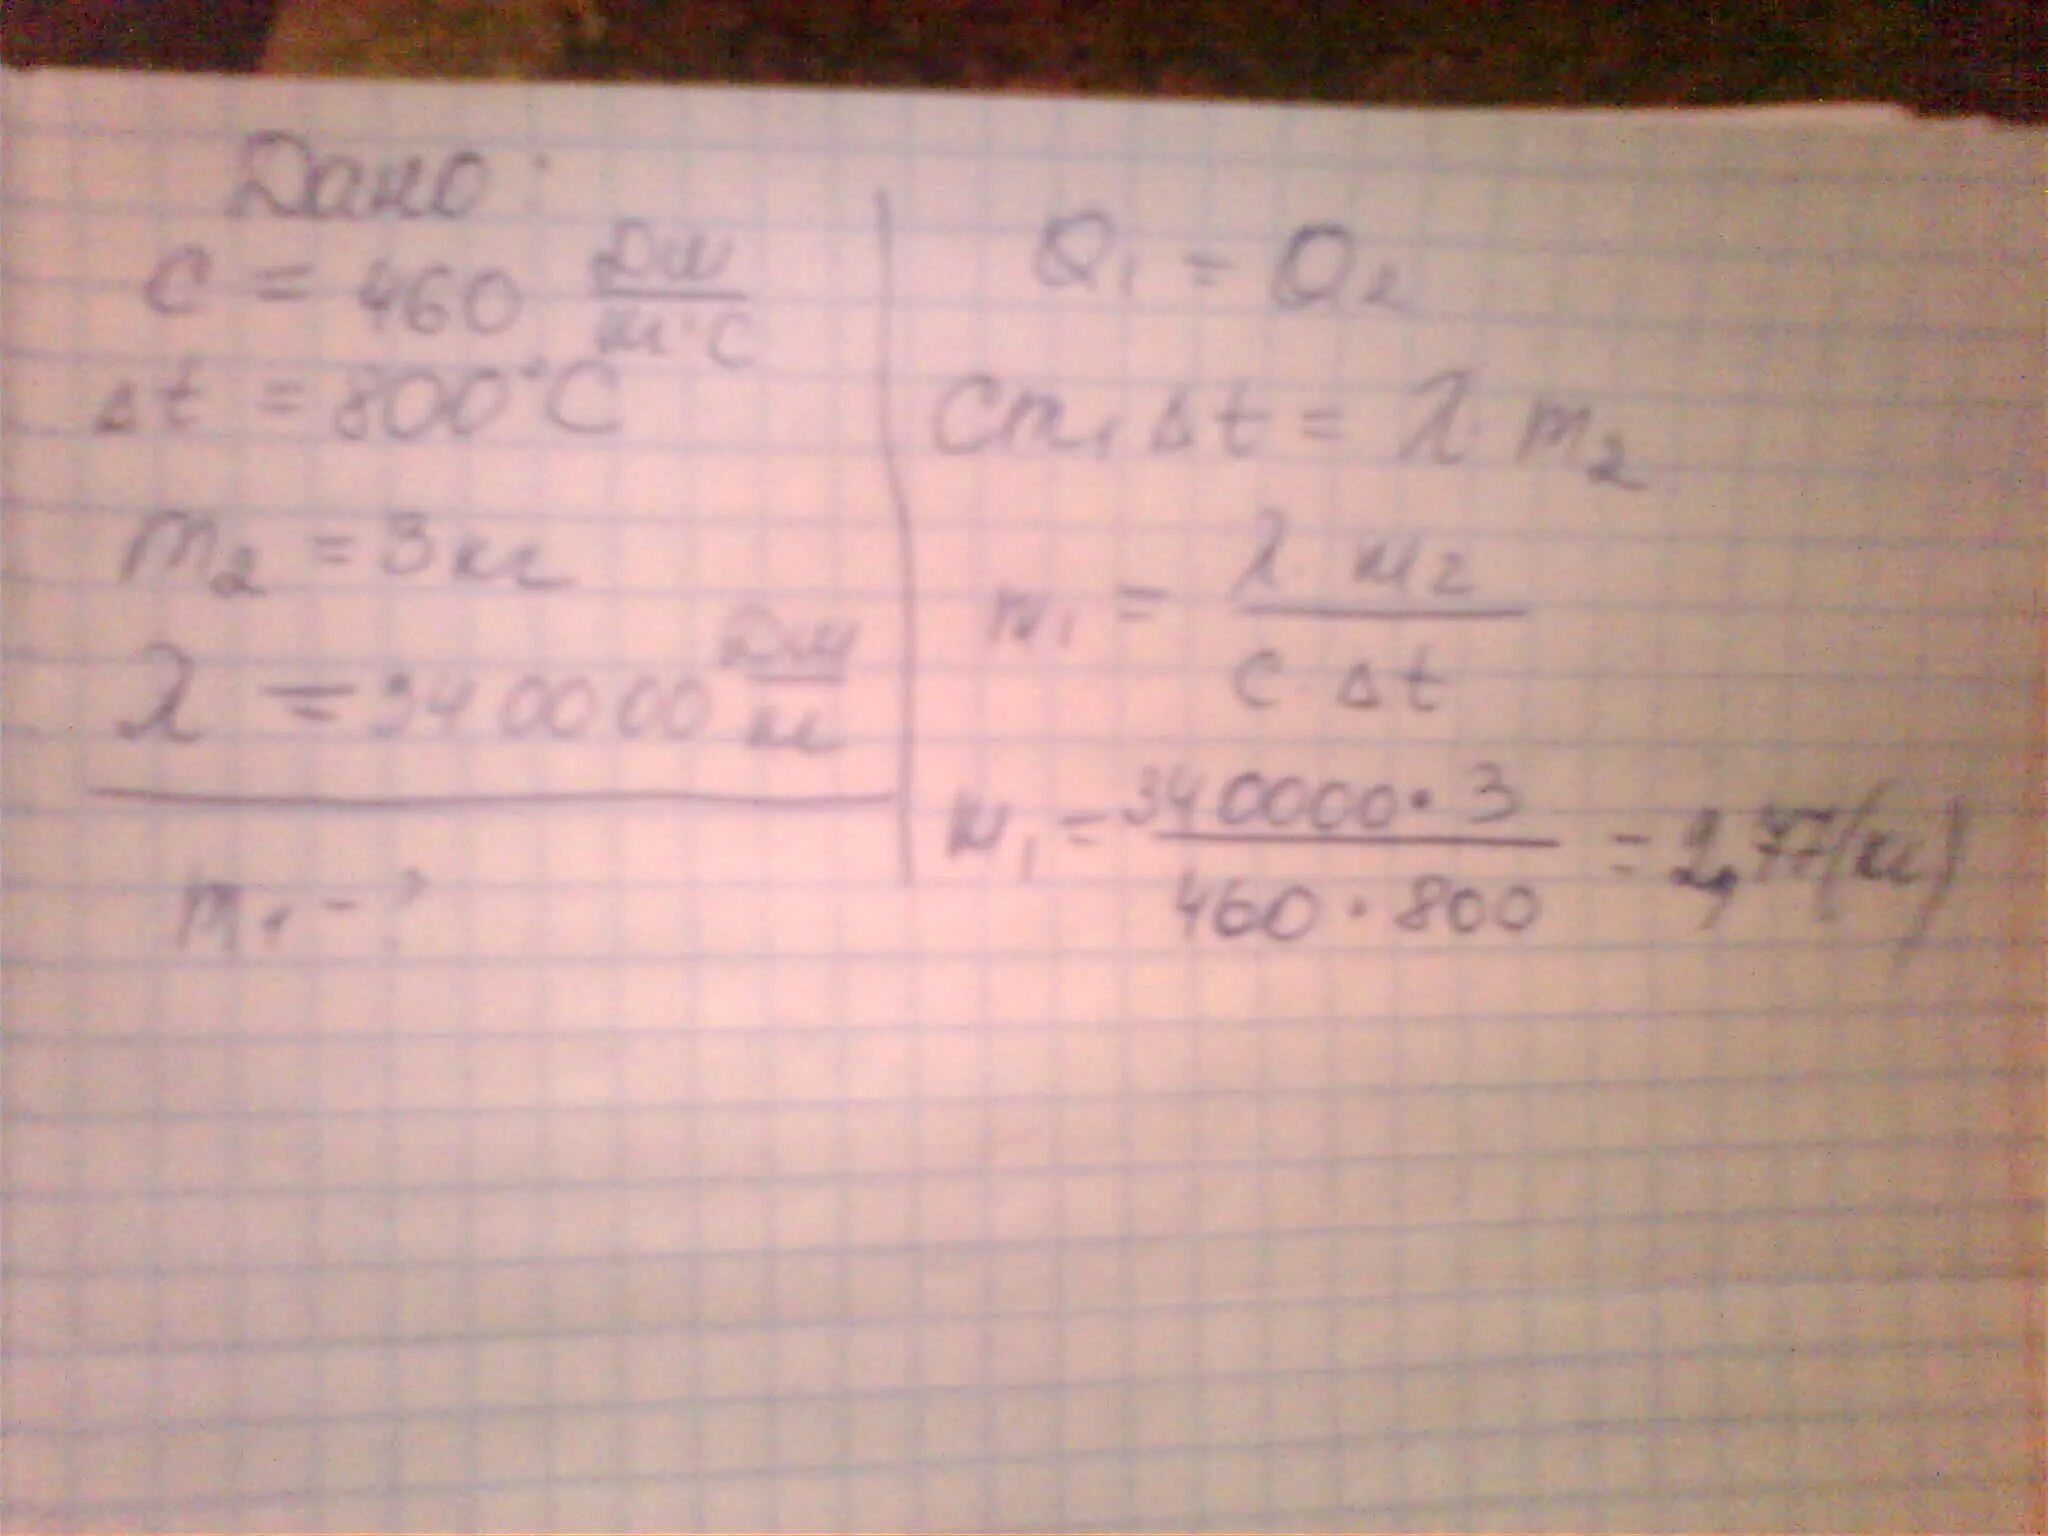 Дано:
c = 460 Дж/кг°C
Δt = 800°C
m₂ = 3 кг
λ = 340000 Дж/кг
m₁ - ?
Q₁ = Q₂
Cm₁Δt = λ · m₂
m₁ = λ m₂ / c · Δt
m₁ = 340000 · 3 / 460 · 800 = 2,77 (кг)